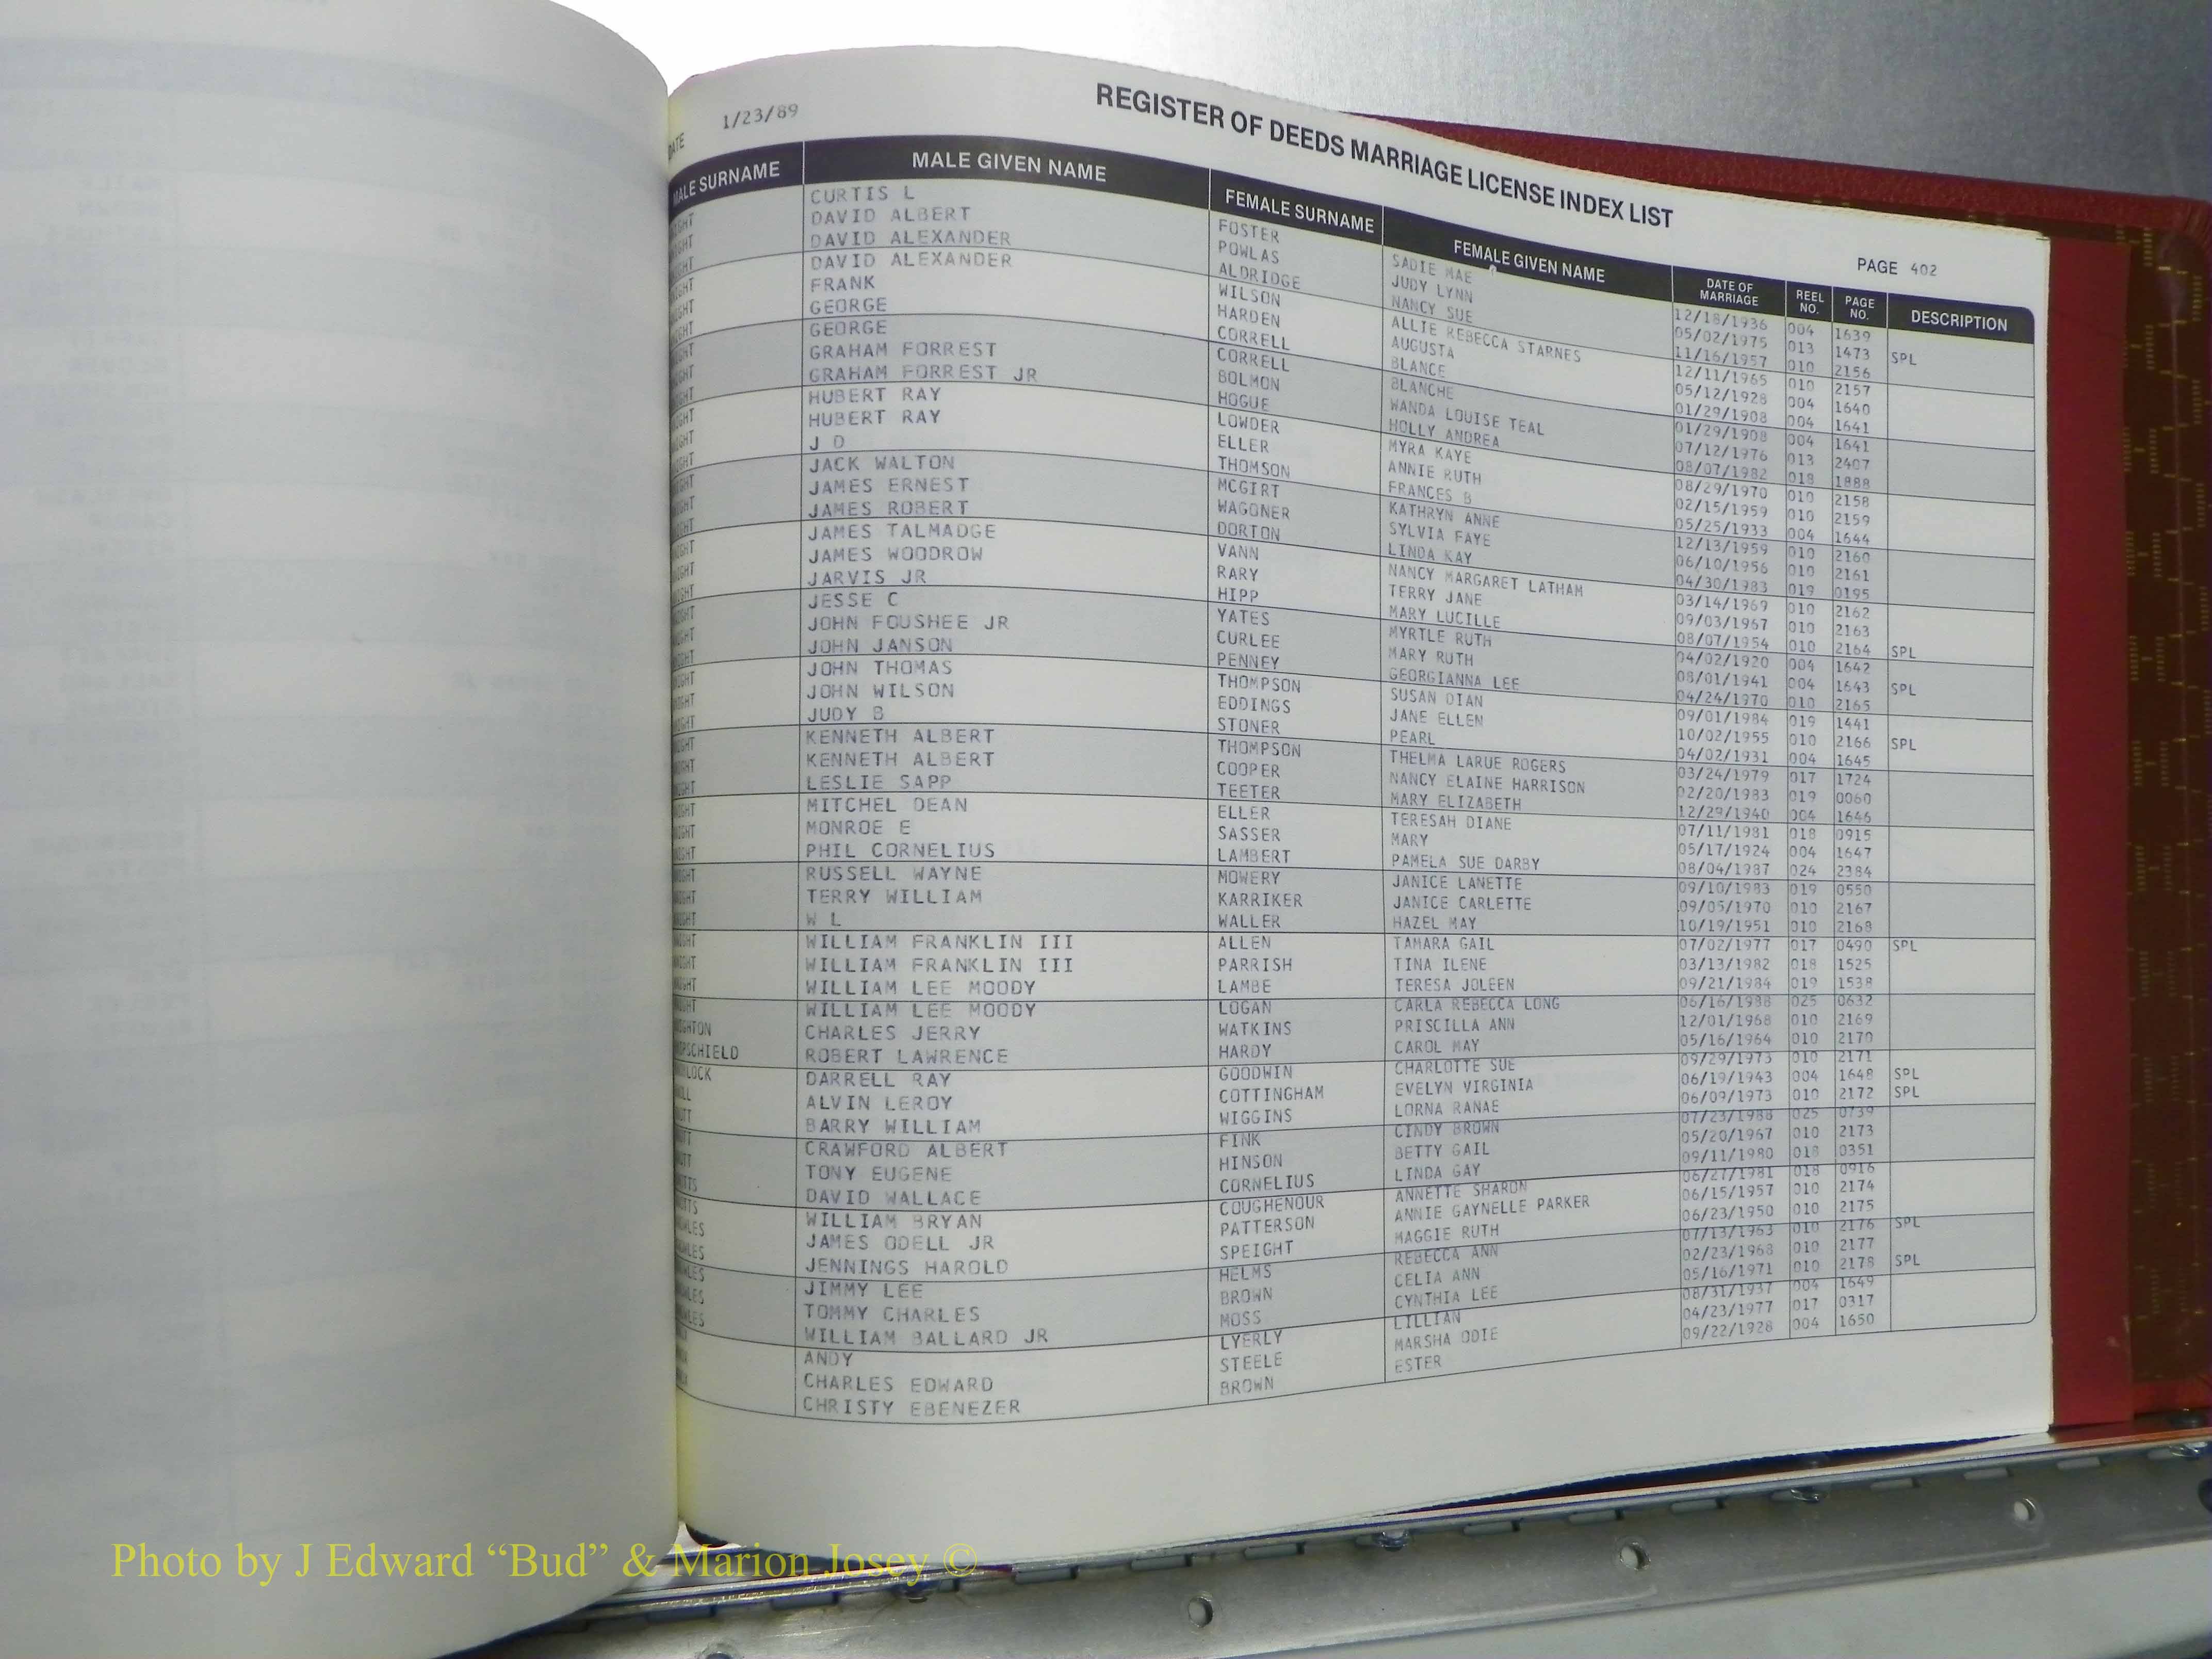 1/23/89
REGISTER OF DEEDS MARRIAGE LICENSE INDEX LIST
PAGE 402
MALE SURNAME MALE GIVEN NAME FEMALE SURNAME FEMALE GIVEN NAME DATE OF MARRIAGE REEL NO. PAGE NO. DESCRIPTION
CURTIS L FOSTER SADIE MAE 12/18/1936 004 1639
DAVID ALBERT POWLAS JUDY LYNN 05/02/1975 013 1473 SPL
DAVID ALEXANDER ALDRIDGE NANCY SUE 11/16/1957 010 2156
DAVID ALEXANDER WILSON ALLIE REBECCA STARNES 12/11/1965 010 2157
FRANK HARDEN AUGUSTA 05/12/1928 004 1640
GEORGE CORRELL BLANCE 01/29/1908 004 1641
GEORGE CORRELL BLANCHE 01/29/1908 004 1641
GRAHAM FORREST BOLMON WANDA LOUISE TEAL 07/12/1976 013 2407
GRAHAM FORREST JR HOGUE HOLLY ANDREA 08/07/1982 018 1888
HUBERT RAY LOWDER MYRA KAYE 08/29/1970 010 2158
HUBERT RAY ELLER ANNIE RUTH 02/15/1959 010 2159
J D THOMSON FRANCES B 05/25/1933 004 1644
JACK WALTON MCGIRT KATHRYN ANNE 12/13/1959 010 2160
JAMES ERNEST WAGONER SYLVIA FAYE 06/10/1956 010 2161
JAMES ROBERT DORTON LINDA KAY 04/30/1983 019 0195
JAMES TALMADGE VANN NANCY MARGARET LATHAM 03/14/1969 010 2162
JAMES WOODROW RARY TERRY JANE 09/03/1967 010 2163
JARVIS JR HIPP MARY LUCILLE 08/07/1954 010 2164 SPL
JESSE C YATES MYRTLE RUTH 04/02/1920 004 1642
JOHN FOUSHEE JR CURLEE MARY RUTH 08/01/1941 004 1643 SPL
JOHN JANSON PENNEY GEORGIANNA LEE 04/24/1970 010 2165
JOHN THOMAS THOMPSON SUSAN DIAN 09/01/1984 019 1441
JOHN WILSON EDDINGS JANE ELLEN 10/02/1955 010 2166 SPL
JUDY B STONER PEARL 04/02/1931 004 1645
KENNETH ALBERT THOMPSON THELMA LARUE ROGERS 03/24/1979 017 1724
KENNETH ALBERT COOPER NANCY ELAINE HARRISON 02/20/1983 019 0060
LESLIE SAPP TEETER MARY ELIZABETH 12/29/1940 004 1646
MITCHEL DEAN ELLER TERESAH DIANE 07/11/1981 018 0915
MONROE E SASSER MARY 05/17/1924 004 1647
PHIL CORNELIUS LAMBERT PAMELA SUE DARBY 08/04/1987 024 2384
RUSSELL WAYNE MOWERY JANICE LANETTE 09/10/1983 019 0550
TERRY WILLIAM KARRIKER JANICE CARLETTE 09/05/1970 010 2167
W L WALLER HAZEL MAY 10/19/1951 010 2168
WILLIAM FRANKLIN III ALLEN TAMARA GAIL 07/02/1977 017 0490 SPL
WILLIAM FRANKLIN III PARRISH TINA ILENE 03/13/1982 018 1525
WILLIAM LEE MOODY LAMBE TERESA JOLEEN 09/21/1984 019 1538
WILLIAM LEE MOODY LOGAN CARLA REBECCA LONG 06/16/1988 025 0632
CHARLES JERRY WATKINS PRISCILLA ANN 12/01/1968 010 2169
ROBERT LAWRENCE HARDY CAROL MAY 05/16/1964 010 2170
DARRELL RAY GOODWIN CHARLOTTE SUE 09/29/1973 010 2171
ALVIN LEROY COTTINGHAM EVELYN VIRGINIA 06/19/1943 004 1648 SPL
BARRY WILLIAM WIGGINS LORNA RANAE 06/09/1973 010 2172 SPL
CRAWFORD ALBERT FINK CINDY BROWN 07/23/1988 025 0739
TONY EUGENE HINSON BETTY GAIL 05/20/1967 010 2173
DAVID WALLACE CORNELIUS LINDA GAY 09/11/1980 018 0351
WILLIAM BRYAN COUGHENOUR ANNETTE SHARON 06/27/1981 018 0916
JAMES ODELL JR PATTERSON ANNIE GAYNELLE PARKER 06/15/1957 010 2174
JENNINGS HAROLD SPEIGHT MAGGIE RUTH 06/23/1950 010 2175
JIMMY LEE HELMS REBECCA ANN 07/13/1963 010 2176 SPL
TOMMY CHARLES BROWN CELIA ANN 02/23/1968 010 2177
WILLIAM BALLARD JR MOSS CYNTHIA LEE 05/16/1971 010 2178 SPL
ANDY LYERLY LILLIAN 08/31/1937 004 1649
CHARLES EDWARD STEELE MARSHA ODIE 04/23/1977 017 0317
CHRISTY EBENEZER BROWN ESTER 09/22/1928 004 1650
Photo by J Edward “Bud” & Marion Josey ©